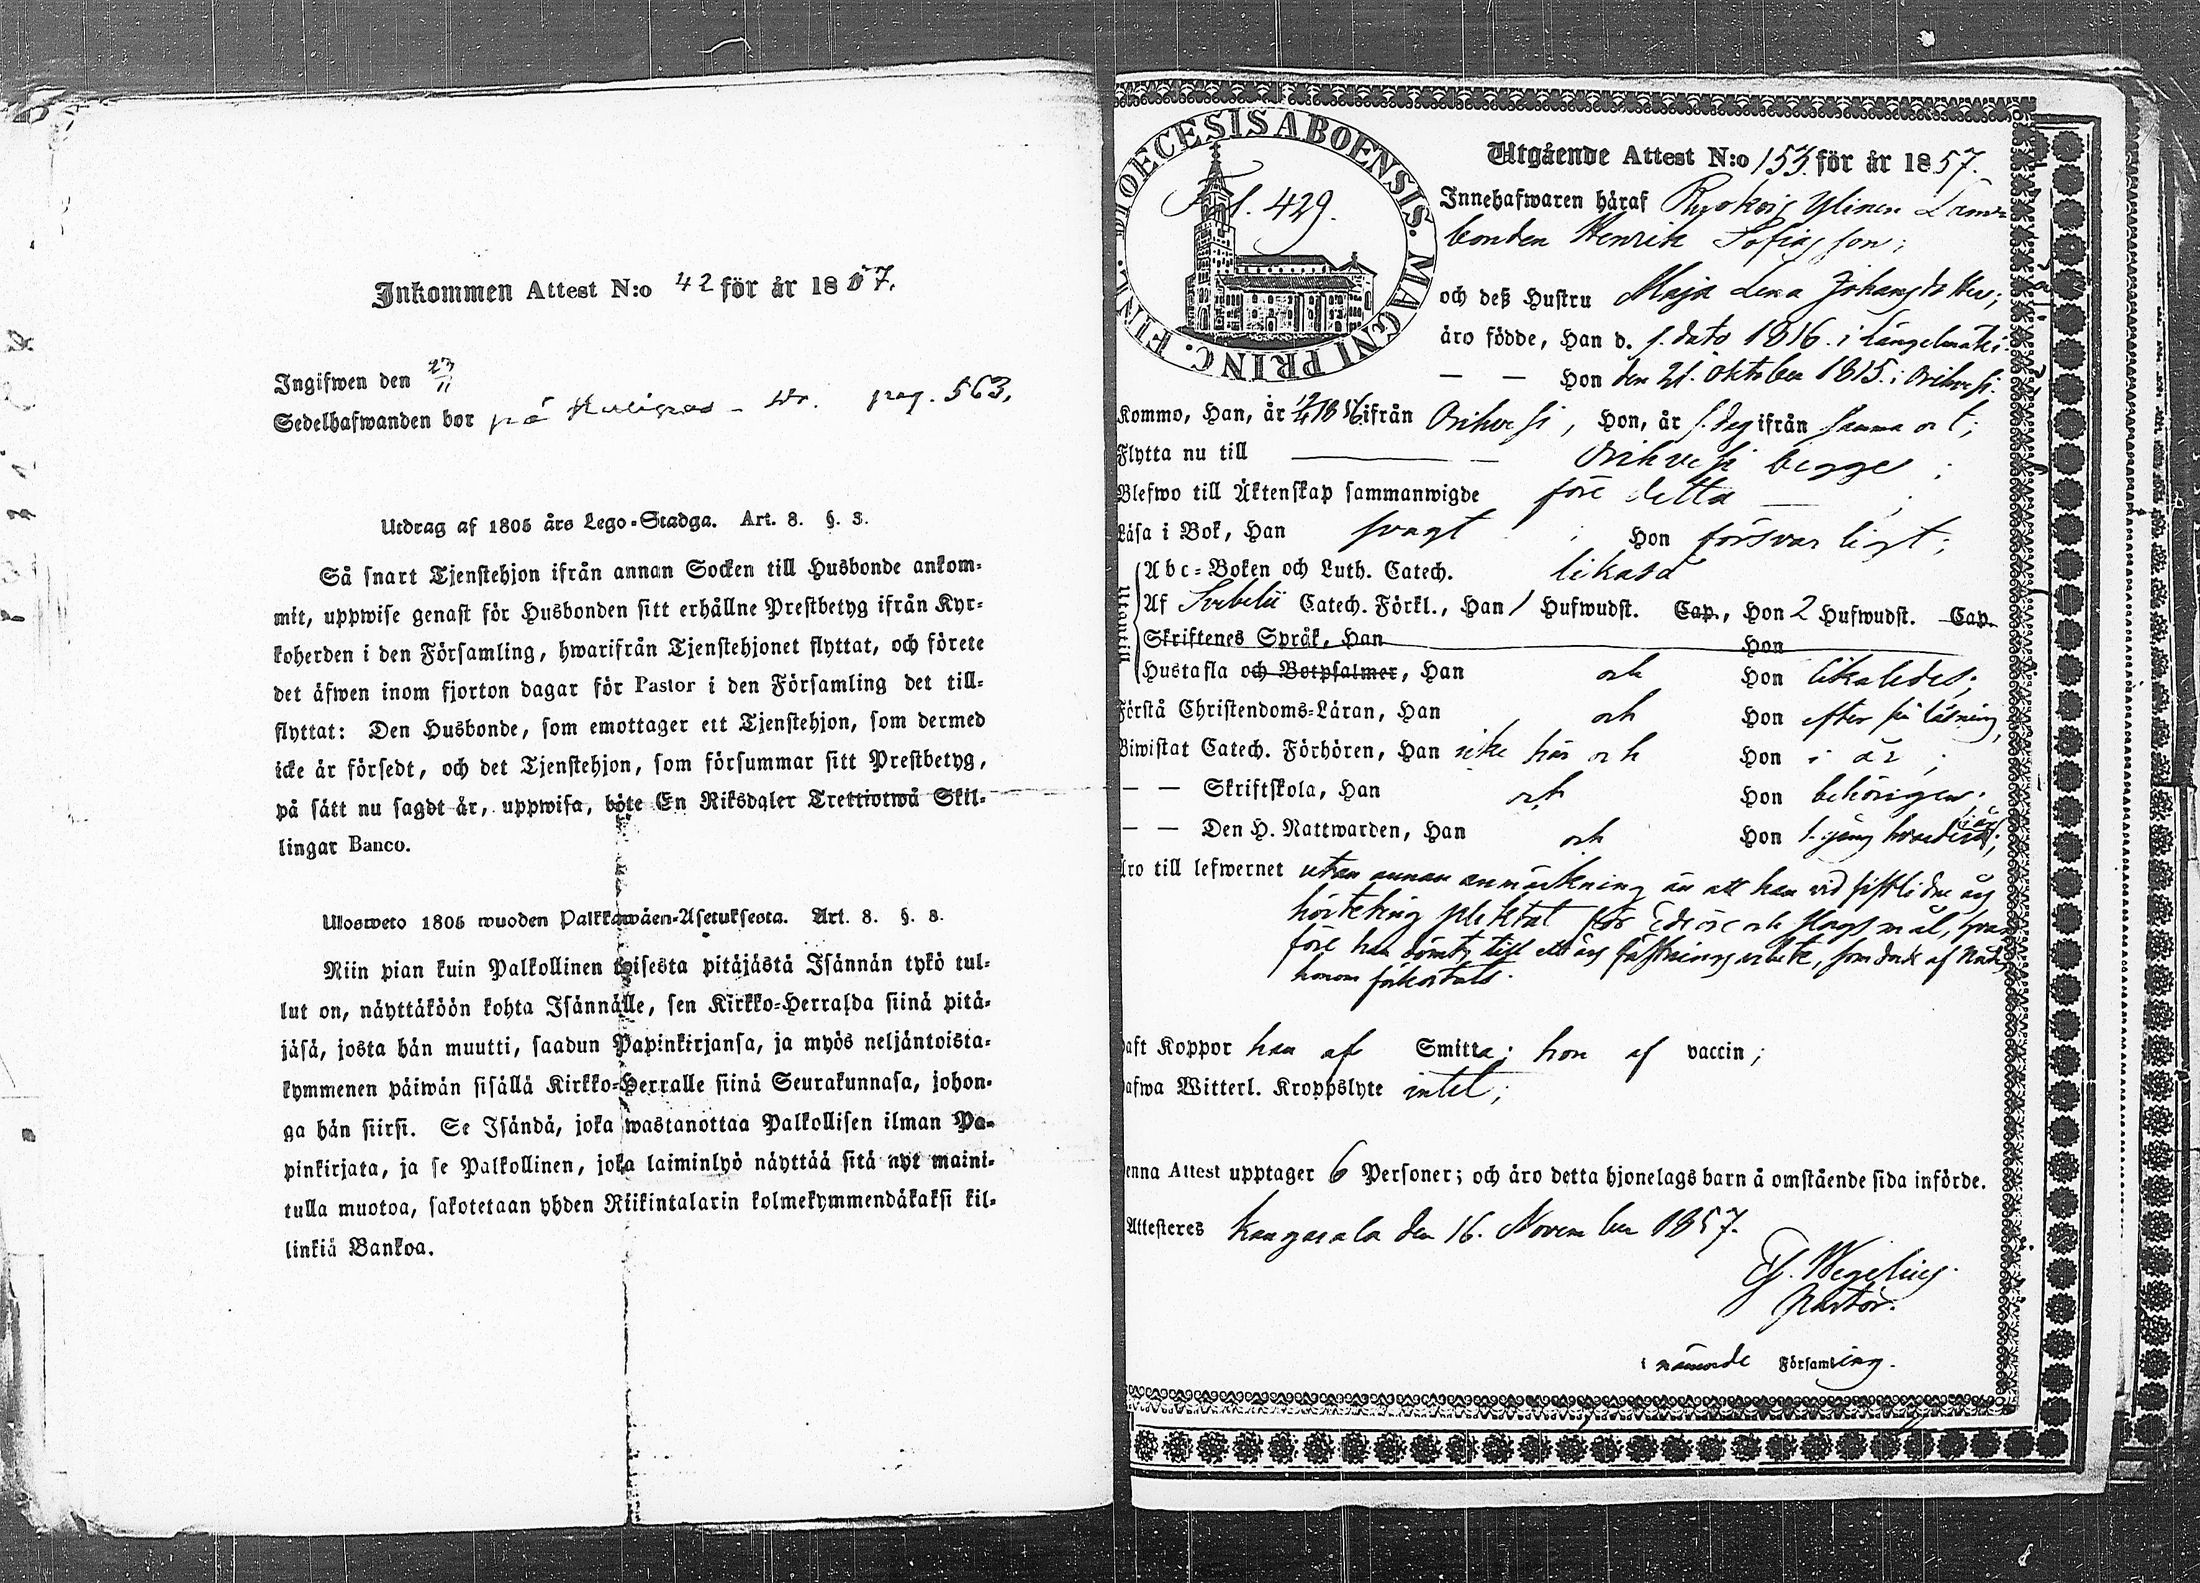 Inkommen Attest N:o 42 för år 1857.
Ingifwen den 23/11
Sedelhafwanden bor på pag. 563.
Utdrag af 1805 års Lego-Stadga. Art. 8. §. 3.
Så snart Tjenstehjon ifrån annan Socken till Husbonde ankom-
mit, uppwise genast för Husbonden sitt erhållne Prestbetyg ifrån Kyr-
koherden i den Församling, hwarifrån Tjenstehjonet flyttat, och förete
det äfwen inom fjorton dagar för Pastor i den Församling det till-
flyttat: Den Husbonde, som emottager ett Tjenstehjon, som dermed
icke är försedt, och det Tjenstehjon, som försummar sitt Prestbetyg,
på sätt nu sagdt är, uppwisa, böte En Riksdaler Trettiotwå Skil-
lingar Banco.
Ulosweto 1805 wuoden Palkkawäen-Asetuksesta. Art. 8. §. 3.
Niin pian kuin Palkollinen toisesta pitäjästä Isännän tykö tul-
lut on, näyttäköön kohta Isännälle, sen Kirkko-Herralda siinä pitä-
jäsä, josta hän muutti, saadun Papinkirjansa, ja myös neljäntoista-
kymmenen päiwän sisällä Kirkko-Herralle siinä Seurakunnasa, johon-
ga hän siirsi. Se Isändä, joka wastanottaa Palkollisen ilman Pa-
pinkirjata, ja se Palkollinen, joka laiminlyö näyttää sitä nyt maini-
tulla muotoa, sakotetaan yhden Riikintalarin kolmekymmendäkaksi kil-
linkiä Bankoa.
DIOECESIS ABOENSIS. MAGNI PRINC. FINL.
Fol. 429.
Utgående Attest N:o 153 för år 1857.
Innehafwaren häraf Ylinen
bonden Henrik Sofiasson;
och deß Hustru Maja Lena Johansdotter;
äro födde, Han d. f. dato 1816. i Längelmäki
— — Hon den 21. Oktober 1815. i Orihvesi.
Kommo, Han, år 18 ifrån Orihvesi, Hon, år s. dag ifrån samma ort;
Flytta nu till — Orihvesi begge;
Blefwo till Äktenskap sammanwigde före detta —
Läsa i Bok, Han svagt; Hon försvarligt;
Abc-Boken och Luth. Catech. likaså
Af Svebelii Catech. Förkl., Han 1 Hufwudst. Cap., Hon 2 Hufwudst. Cap.
Skriftenes Språk, Han Hon
Hustafla och Botpsalmer, Han och Hon likaledes;
Förstå Christendoms-Läran, Han och Hon efter sin läsning,
Biwistat Catech. Förhören, Han icke här och Hon i år;
— — Skriftskola, Han och Hon behörigen.
— — Den H. Nattwarden, Han och Hon 1. gång hvardera i år;
Äro till lefwernet utan annan anmärkning än att han vid sistlidne års
hösteting pliktat för Edsöre och slagsmål, hvar
före han dömts till ett års fästningsarbete, som dock af Nåd
honom förkortats.
Haft Koppor han af Smitta; hon af vaccin;
Hafwa Witterl. Kroppslyte intet;
Denna Attest upptager 6 Personer; och äro detta hjonelags barn å omstående sida införde.
Attesteres Kangasala den 16. November 1857.
Wegelius
Pastor.
i nämnde Församling.